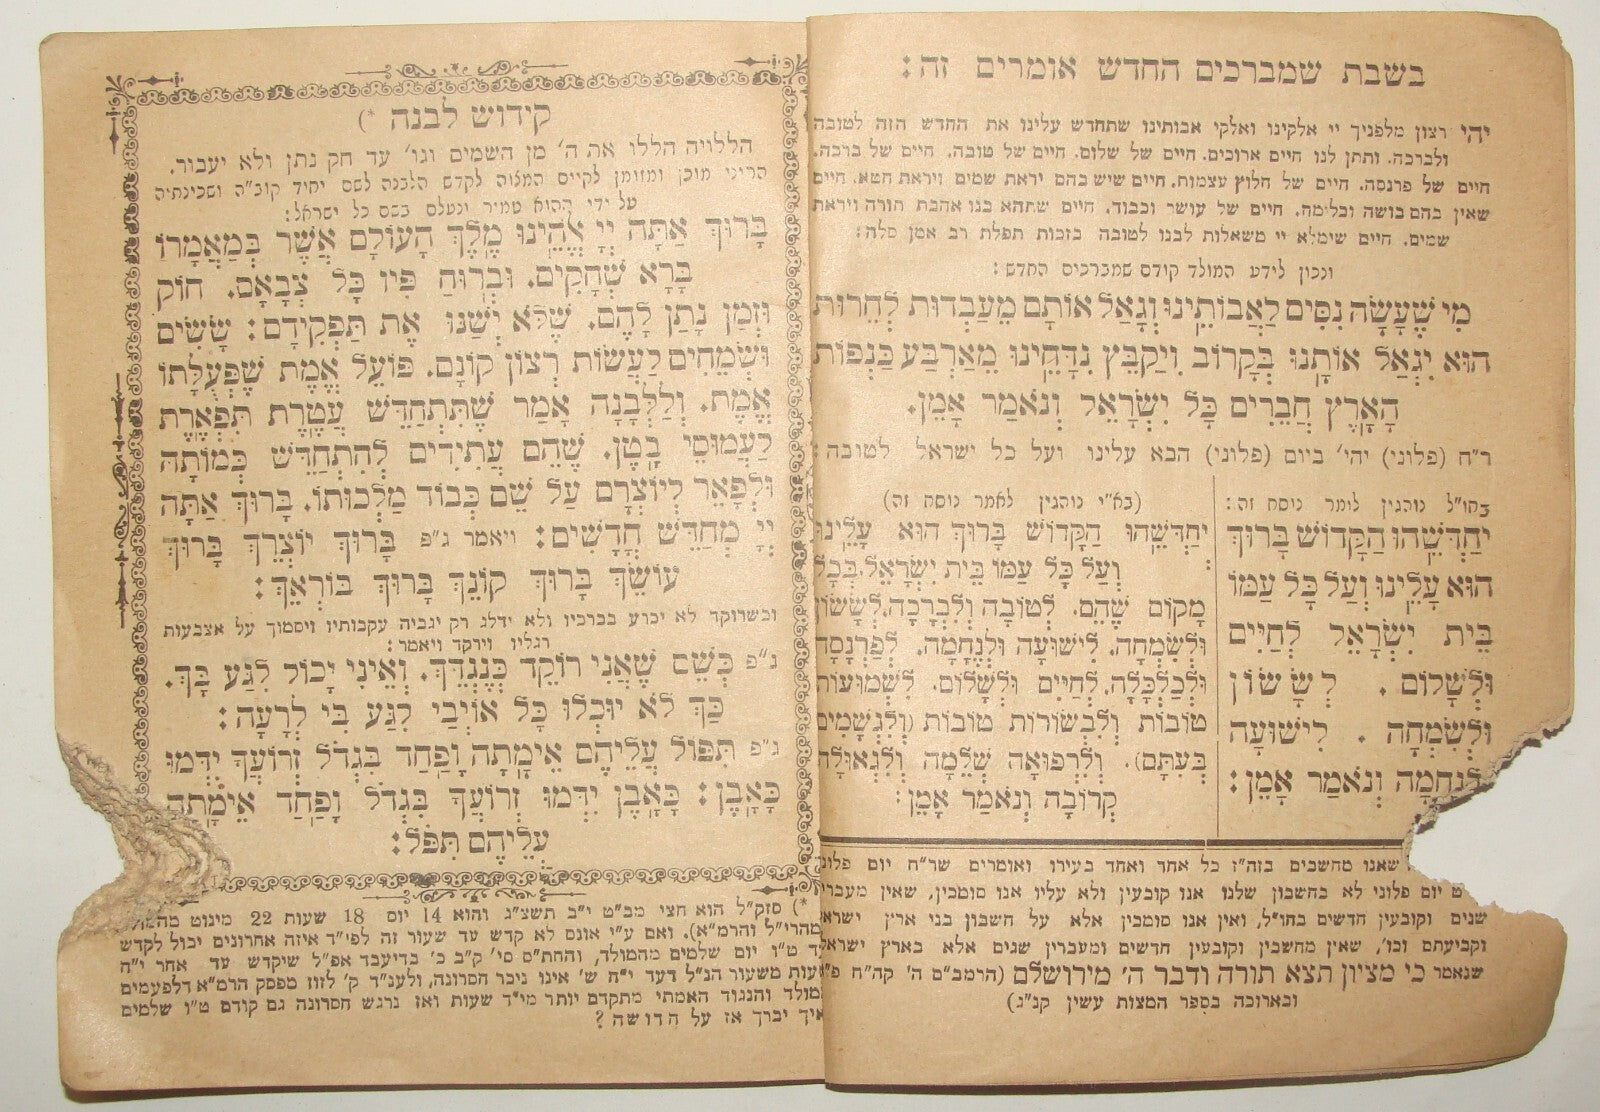 בשבת שמברכים החדש אומרים זה:
יהי רצון מלפניך יי אלקינו ואלקי אבותינו שתחדש עלינו את החדש הזה לטובה
ולברכה. ותתן לנו חיים ארוכים. חיים של שלום. חיים של טובה. חיים של ברכה.
חיים של פרנסה. חיים של חלוץ עצמות. חיים שיש בהם יראת שמים ויראת חטא. חיים
שאין בהם בושה וכלימה. חיים של עושר וכבוד. חיים שתהא בנו אהבת תורה ויראת
שמים. חיים שימלא יי משאלות לבנו לטובה בזכות תפלת רב אמן סלה:
ונכון לידע המולד קודם שמברכים החדש:
מִי שֶׁעָשָׂה נִסִּים לַאֲבוֹתֵינוּ וְגָאַל אוֹתָם מֵעַבְדוּת לְחֵרוּת
הוּא יִגְאַל אוֹתָנוּ בְּקָרוֹב וִיקַבֵּץ נִדָּחֵינוּ מֵאַרְבַּע כַּנְפוֹת
הָאָרֶץ חֲבֵרִים כָּל יִשְׂרָאֵל וְנֹאמַר אָמֵן.
ר"ח (פלוני) יהי' ביום (פלוני) הבא עלינו ועל כל ישראל לטובה:
בחו"ל נוהגין לומר נוסח זה:
יְחַדְּשֵׁהוּ הַקָּדוֹשׁ בָּרוּךְ
הוּא עָלֵינוּ וְעַל כָּל עַמּוֹ
בֵּית יִשְׂרָאֵל לְחַיִּים
וּלְשָׁלוֹם . לְשָׂשׂוֹן
וּלְשִׂמְחָה . לִישׁוּעָה
וּלְנֶחָמָה וְנֹאמַר אָמֵן:
(בא"י נוהגין לאמר נוסח זה)
יְחַדְּשֵׁהוּ הַקָּדוֹשׁ בָּרוּךְ הוּא עָלֵינוּ
וְעַל כָּל עַמּוֹ בֵּית יִשְׂרָאֵל. בְּכָל
מָקוֹם שֶׁהֵם. לְטוֹבָה וְלִבְרָכָה. לְשָׂשׂוֹן
וּלְשִׂמְחָה. לִישׁוּעָה וּלְנֶחָמָה. לְפַרְנָסָה
וּלְכַלְכָּלָה. לְחַיִּים וּלְשָׁלוֹם. לִשְׁמוּעוֹת
טוֹבוֹת וְלִבְשׂוֹרוֹת טוֹבוֹת (וְלִגְשָׁמִים
בְּעִתָּם). וְלִרְפוּאָה שְׁלֵמָה וְלִגְאוּלָּה
קְרוֹבָה וְנֹאמַר אָמֵן:
שאנו מחשבים בזה"ז כל אחד ואחד בעירו ואומרים שר"ח יום פלוני
יום פלוני לא בחשבון שלנו אנו קובעין ולא עליו אנו סומכין, שאין מעברין
שנים וקובעין חדשים בחו"ל, ואין אנו סומכין אלא על חשבון בני ארץ ישראל
וקביעתם וכו', שאין מחשבין וקובעין חדשים ומעברין שנים אלא בארץ ישראל
שנאמר כי מציון תצא תורה ודבר ה' מירושלם (הרמב"ם ה' קה"ח
ובארוכה בספר המצות עשין קנ"ג)
קידוש לבנה *)
הללויה הללו את ה' מן השמים וגו' עד חק נתן ולא יעבור.
הריני מוכן ומזומן לקיים המצוה לקדש הלבנה לשם יחיד קוב"ה ושכינתיה
על ידי ההוא טמיר ונעלם בשם כל ישראל:
בָּרוּךְ אַתָּה יְיָ אֱלֹהֵינוּ מֶלֶךְ הָעוֹלָם אֲשֶׁר בְּמַאֲמָרוֹ
בָּרָא שְׁחָקִים. וּבְרוּחַ פִּיו כָּל צְבָאָם. חוֹק
וּזְמַן נָתַן לָהֶם. שֶׁלֹּא יְשַׁנּוּ אֶת תַּפְקִידָם: שָׂשִׂים
וּשְׂמֵחִים לַעֲשׂוֹת רְצוֹן קוֹנָם. פּוֹעֵל אֱמֶת שֶׁפְּעֻלָּתוֹ
אֱמֶת. וְלַלְּבָנָה אָמַר שֶׁתִּתְחַדֵּשׁ עֲטֶרֶת תִּפְאֶרֶת
לַעֲמוּסֵי בָטֶן. שֶׁהֵם עֲתִידִים לְהִתְחַדֵּשׁ כְּמוֹתָהּ
וּלְפָאֵר לְיוֹצְרָם עַל שֵׁם כְּבוֹד מַלְכוּתוֹ. בָּרוּךְ אַתָּה
יְיָ מְחַדֵּשׁ חֳדָשִׁים: ויאמר ג"פ בָּרוּךְ יוֹצְרֵךְ בָּרוּךְ
עוֹשֵׂךְ בָּרוּךְ קוֹנֵךְ בָּרוּךְ בּוֹרְאֵךְ:
וכשרוקד לא יכרע בברכיו ולא ידלג רק יגביה עקבותיו ויסמוך על אצבעות
רגליו וירקד ויאמר:
ג"פ כְּשֵׁם שֶׁאֲנִי רוֹקֵד כְּנֶגְדֵּךְ. וְאֵינִי יָכוֹל לִגַּע בָּךְ.
כַּךְ לֹא יוּכְלוּ כָּל אוֹיְבַי לִגַּע בִּי לְרָעָה:
ג"פ תִּפּוֹל עֲלֵיהֶם אֵימָתָה וָפַחַד בִּגְדֹל זְרוֹעֲךָ יִדְּמוּ
כָּאָבֶן: כָּאָבֶן יִדְּמוּ זְרוֹעֲךָ בִּגְדֹל וָפַחַד אֵימָתָה
עֲלֵיהֶם תִּפֹּל:
*) סוקק"ל הוא חצי מכ"ט י"ב תשצ"ג והוא 14 יום 18 שעות 22 מינוט
(מהרי"ל והרמ"א). ואם ע"י אונס לא קדש עד שעור זה לפי"ד איזה אחרונים יכול לקדש
עד ט"ו יום שלמים מהמולד, והחת"ס סי' ק"ב כ' בדיעבד אפ"ל שיקדש עד אחר י"ח
שעות משעור הנ"ל דעד י"ח ש' אינו ניכר חסרונה, ולענ"ד ק' לזוז מפסק הרמ"א דלפעמים
המולד והנגוד האמתי מתקדם יותר מי"ד שעות ואז נרגש חסרונה גם קודם ט"ו שלמים
ואיך יברך אז על חדושה?